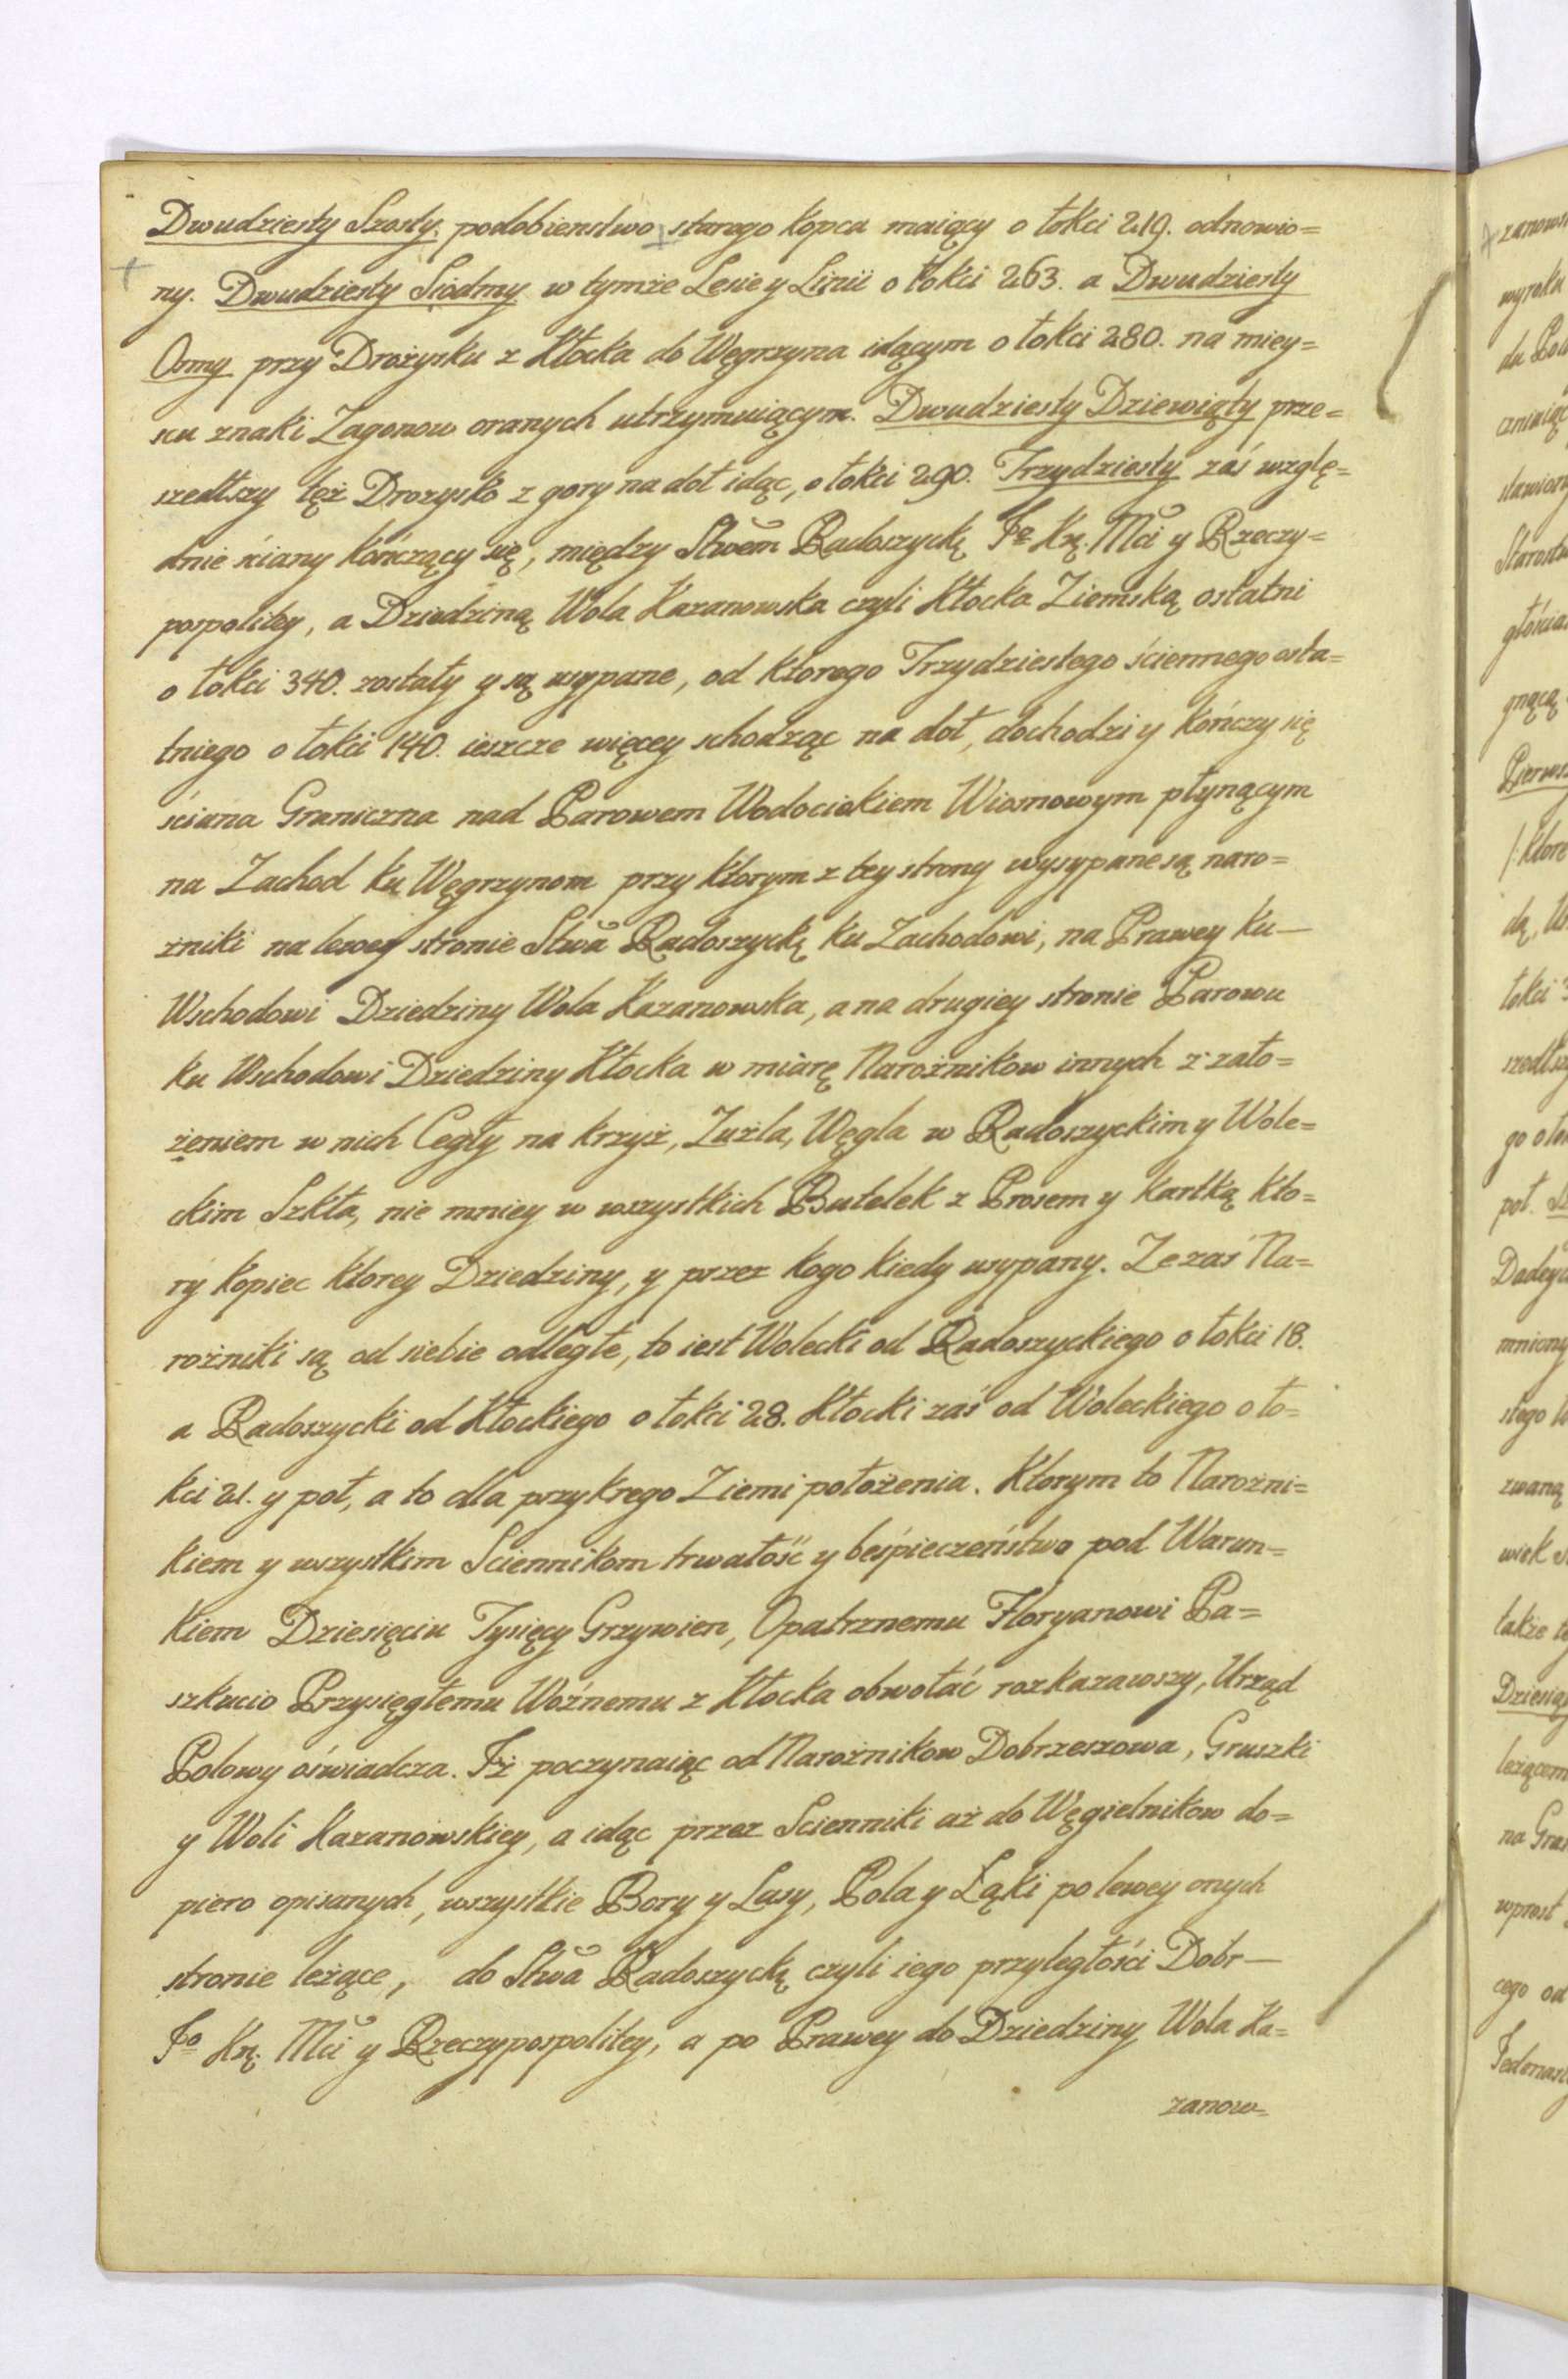 Dwudziesty Szosty podobienstwo starego kopca maiący o łokci 219. odnowio=
ny. Dwudziesty Siodmy w tymże Lesie y Linii o łokci 263. a Dwudziesty
Osmy przy Drożysku z Kłocka do Węgrzyna idącym o łokci 280. na miey=
scu znaki Zagonow oranych utrzymuiącym. Dwudziesty Dziewiąty prze=
szedłszy też Drozysko z gory na dół idąc, o łokci 290. Trzydziesty zaś wzglę=
dnie ściany kończący się, między Stwem Radoszyckę Jº Kŋ. Mci y Rzeczy=
pospolitey, a Dziedziną Wola Kazanowska czyli Kłocka Ziemską ostatni
o łokci 340. zostały y są usypane, od ktorego Trzydziestego ściennego osta=
tniego o łokci 140. ieszcze więcey schodząc na dół, dochodzi y kończy się
ściana Graniczna nad Parowem Wodociekiem Wiosnowym płynącym
na Zachod ku Węgrzynom przy ktorym z tey strony wysypane są naro=
żniki na lewey stronie Stwa Radoszyckę ku Zachodowi, na Prawey ku—
Wschodowi Dziedziny Wola Kazanowska, a na drugiey stronie Parowu
ku Wschodowi Dziedziny Kłocka w miarę Narożnikow innych z zało=
żeniem w nich Cegły na krzyż, Zużla, Węgla w Radoszyckim y Wole=
ckim Szkła, nie mniey w wszystkich Butelek z Prosem y kartką kto=
ry kopiec ktorey Dziedziny, y przez kogo kiedy usypany. Ze zaś Na=
rożniki są od siebie odległe, to iest Wolecki od Radoszyckiego o łokci 18.
a Radoszycki od Kłockiego o łokci 28. Kłocki zaś od Woleckiego o ło=
kci 21. y poł, a to dla przykrego Ziemi położenia. Ktorym to Narożni=
kiem y wszystkim Sciennikom trwałość y beśpieczeństwo pod Warun=
kiem Dziesięciu Tysięcy Grzywien, Opatrznemu Floryanowi Pa=
szkucio Przysięgłemu Woźnemu z Kłocka obwołać rozkazawszy, Urząd
Polowy oświadcza. Iż poczynaiąc od Narożnikow Dobrzeszowa, Gruszki
y Woli Kazanowskiey, a idąc przez Scienniki aż do Węgielnikow do=
piero opisanych, wszystkie Bory y Lasy, Pola y Łąki po lewey onych
stronie leżące, do Stwa Radoszyckę czyli iego przyległości Dobr—
Jº Kŋ. Mci y Rzeczypospolitey, a po Prawey do Dziedziny Wola Ka=
zanow=